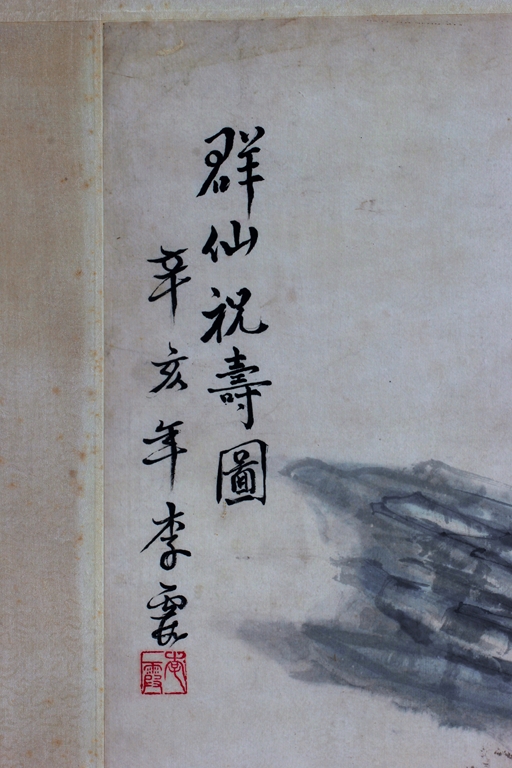 群仙祝壽圖
辛亥年李霞
李霞